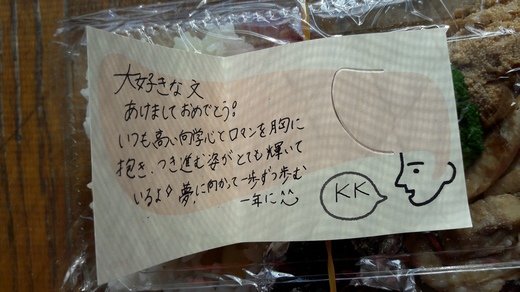 大好きな文
あけましておめでとう!
いつも高い向学心とロマンを胸に
抱き、つき進む姿がとても輝いて
いるよ♪夢に向かって一歩ずつ歩む
一年に
KK